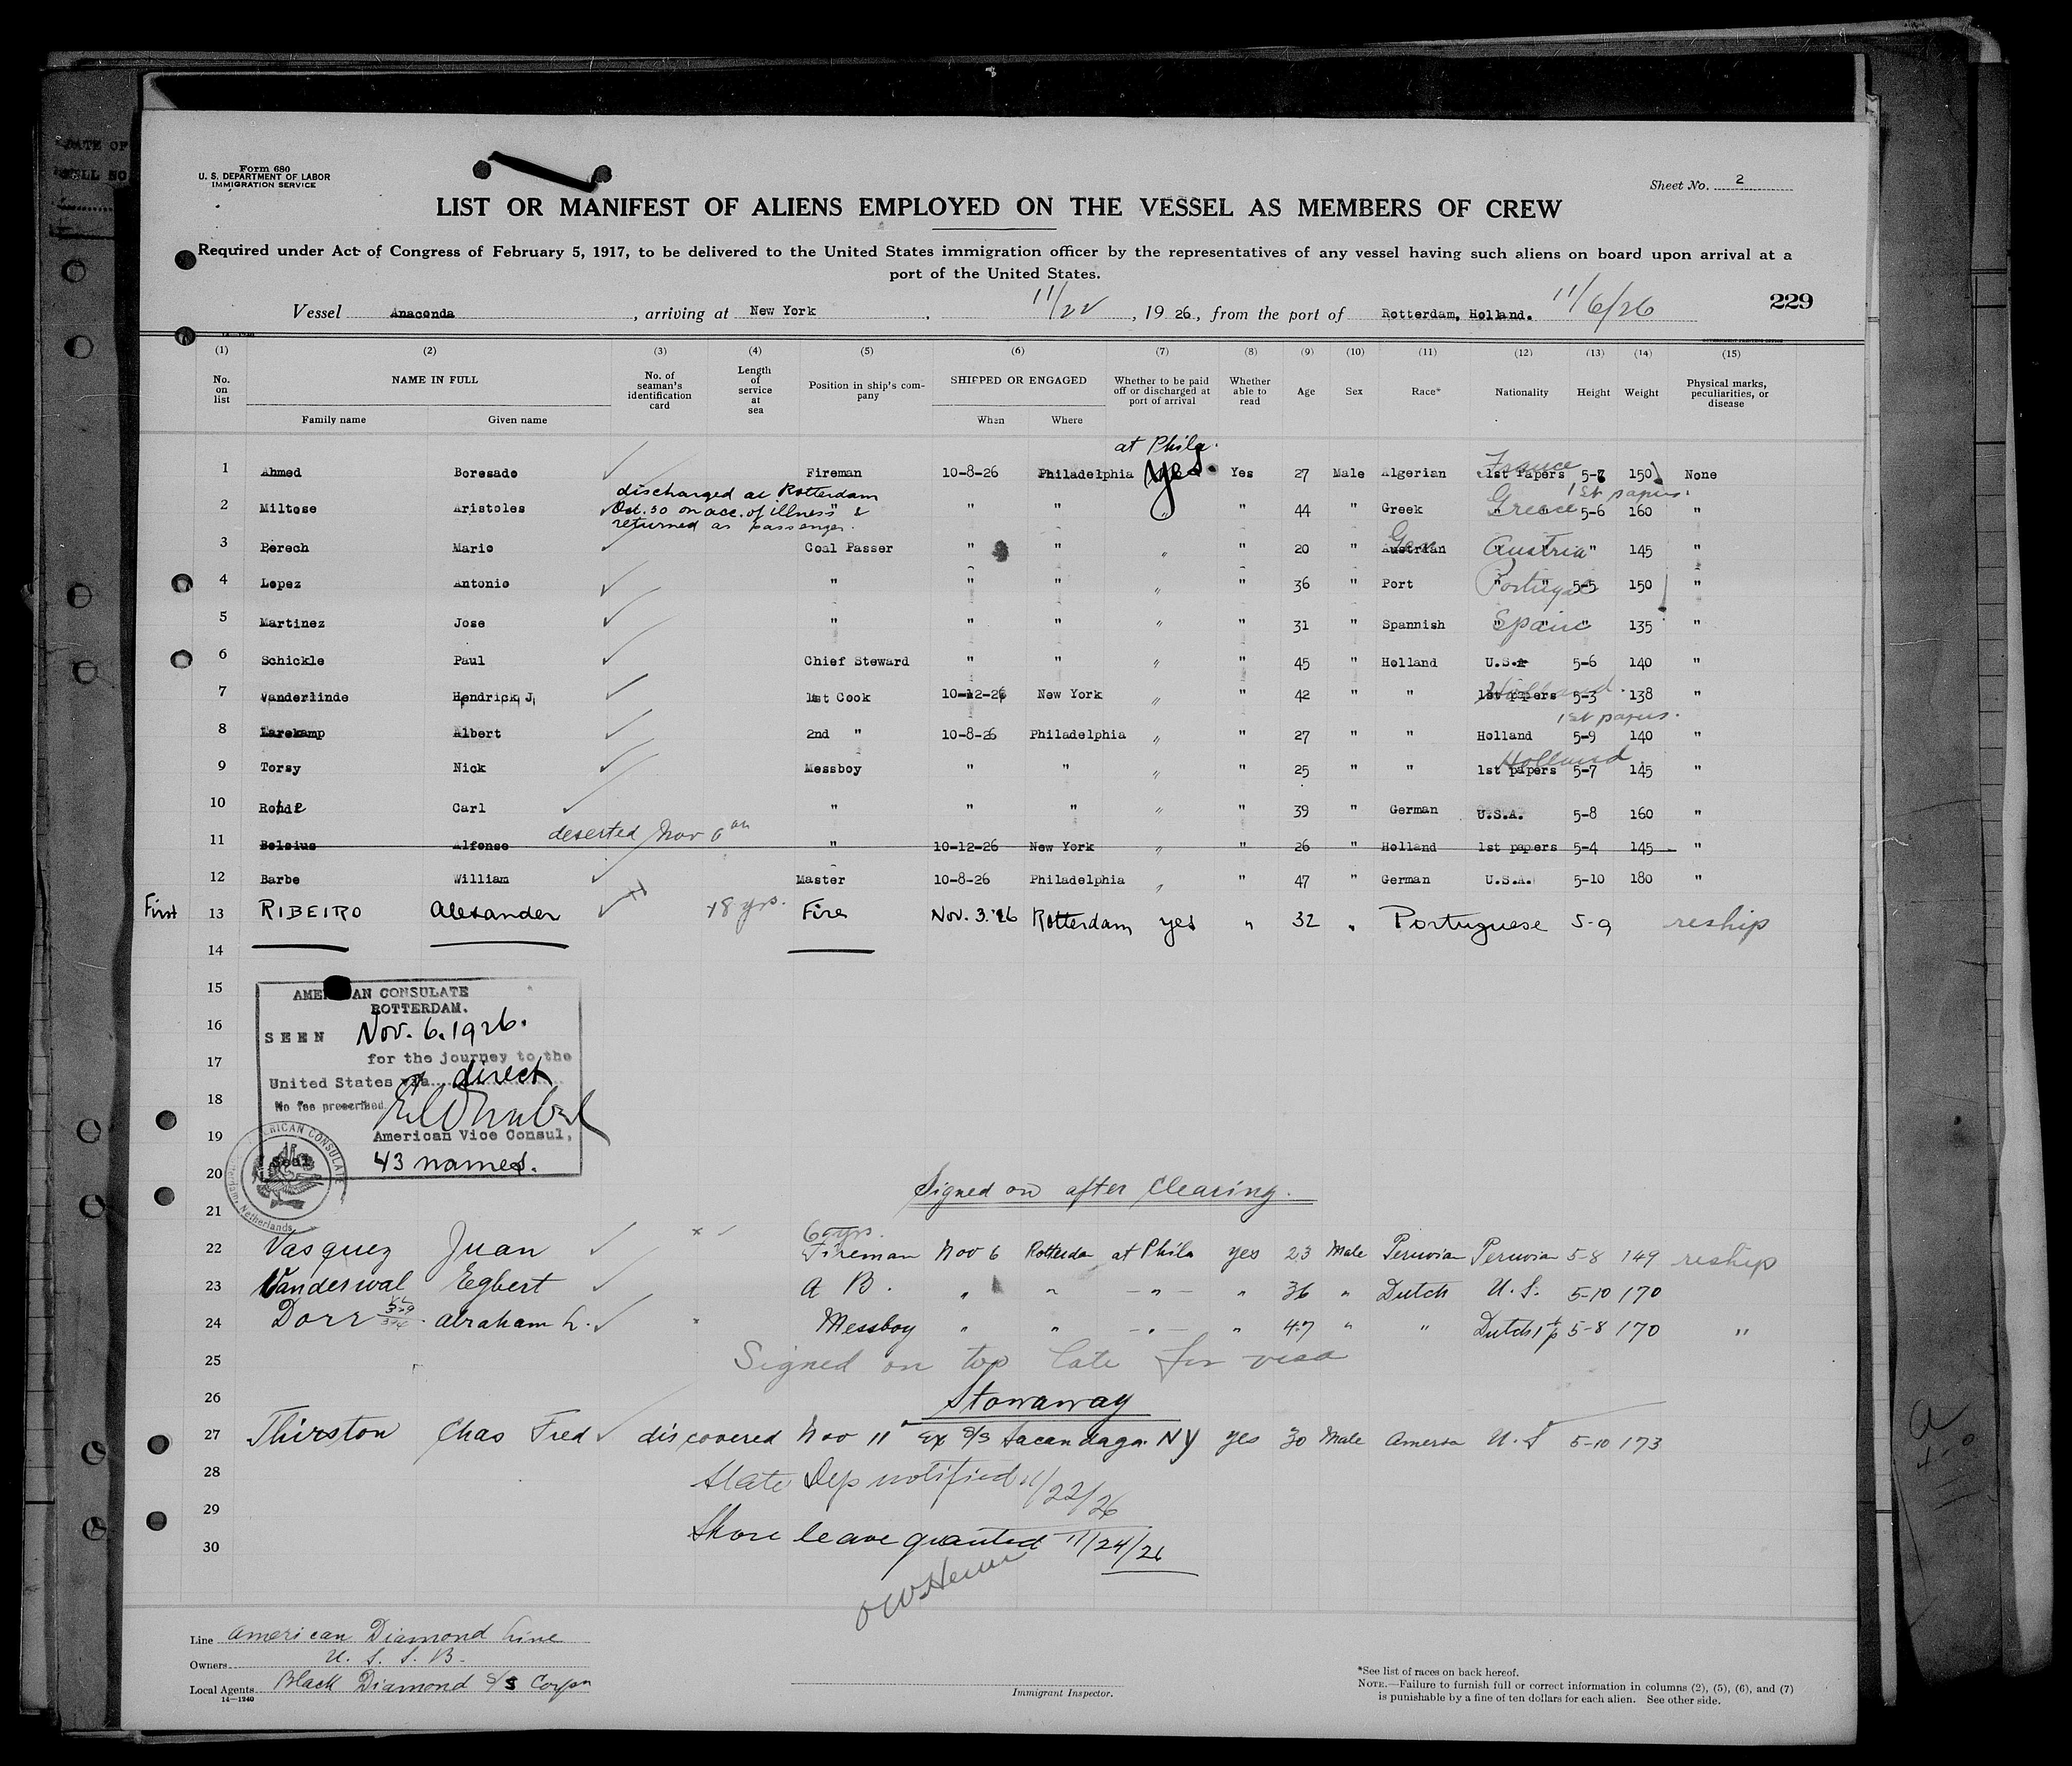 DATE OF
Form 680
U. S. DEPARTMENT OF LABOR
IMMIGRATION SERVICE
Sheet No. 2
LIST OR MANIFEST OF ALIENS EMPLOYED ON THE VESSEL AS MEMBERS OF CREW
Required under Act of Congress of February 5, 1917, to be delivered to the United States immigration officer by the representatives of any vessel having such aliens on board upon arrival at a
port of the United States.
Vessel Anaconda, arriving at New York, 11/22, 1926, from the port of Rotterdam, Holland. 11/6/26 229
(1) (2) (3) (4) (5) (6) (7) (8) (9) (10) (11) (12) (13) (14) (15)
No. on list NAME IN FULL Family name Given name No. of seaman's identification card Length of service at sea Position in ship's company SHIPPED OR ENGAGED When Where Whether to be paid off or discharged at port of arrival Whether able to read Age Sex Race* Nationality Height Weight Physical marks, peculiarities, or disease
at Phila.
1 Ahmed Boresado Fireman 10-8-26 Philadelphia yes. Yes 27 Male Algerian 1st Papers France 5-6 150 None
discharged at Rotterdam 1st papers.
2 Miltose Aristoles Oct. 30 on acc. of illness & " " " 44 " Greek Greece 5-6 160 "
returned as passenger.
3 Perech Mario Coal Passer " " " " 20 " Austrian Austria " 145 "
4 Lopez Antonio " " " " " 36 " Port Portugal 5-5 150 "
5 Martinez Jose " " " " " 31 " Spannish Spain " 135 "
6 Schickle Paul Chief Steward " " " " 45 " Holland U.S.A 5-6 140 "
7 Vanderlinde Hendrick J, 1st Cook 10-12-26 New York " " 42 " " 1st papers Holland. 5-3 138 "
1st papers.
8 Karekamp Albert 2nd " 10-8-26 Philadelphia " " 27 " " Holland 5-9 140 "
9 Torsy Nick Messboy " " " " 25 " " 1st papers Holland 5-7 145 "
10 Carl " " " " " 39 " German U.S.A. 5-8 160 "
deserted Nov 6
11 Belsius Alfonso " 10-12-26 New York " " 26 " Holland 1st papers 5-4 145 "
12 Barbe William Master 10-8-26 Philadelphia " " 47 " German U.S.A. 5-10 180 "
First 13 RIBEIRO Alexander 18 yrs. Fire Nov. 3. '26 Rotterdam yes " 32 " Portuguese 5-9 reship
14
15
16
17
18
19
20
21
AMERICAN CONSULATE
ROTTERDAM.
SEEN Nov. 6. 1926.
for the journey to the
United States via direct
No fee prescribed.
American Vice Consul,
Seal 43 names.
AMERICAN CONSULATE
Netherlands
Signed on after Clearing.
6 yrs.
22 Vasquez Juan Fireman Nov 6 Rotterdam at Phila yes 23 Male Peruvian Peruvian 5-8 149 reship
23 Vanderwal Egbert A B. " " " " 36 " Dutch U. S. 5-10 170
24 Dorr Abraham L. Messboy " " " " 47 " " Dutch 1st p 5-8 170 "
25 Signed on too late for visa
26 Stowaway
27 Thirston Chas Fred discovered Nov 11 Ex S/S Sacandaga NY yes 30 Male America U. S 5-10 173
28 State Dep notified 11/22/26
29
30 Shore leave granted 11/24/26
Line American Diamond Line
Owners U. S. S. B.
Local Agents Black Diamond S/S Corpn
14—1240
Immigrant Inspector.
*See list of races on back hereof.
NOTE.—Failure to furnish full or correct information in columns (2), (5), (6), and (7)
is punishable by a fine of ten dollars for each alien. See other side.